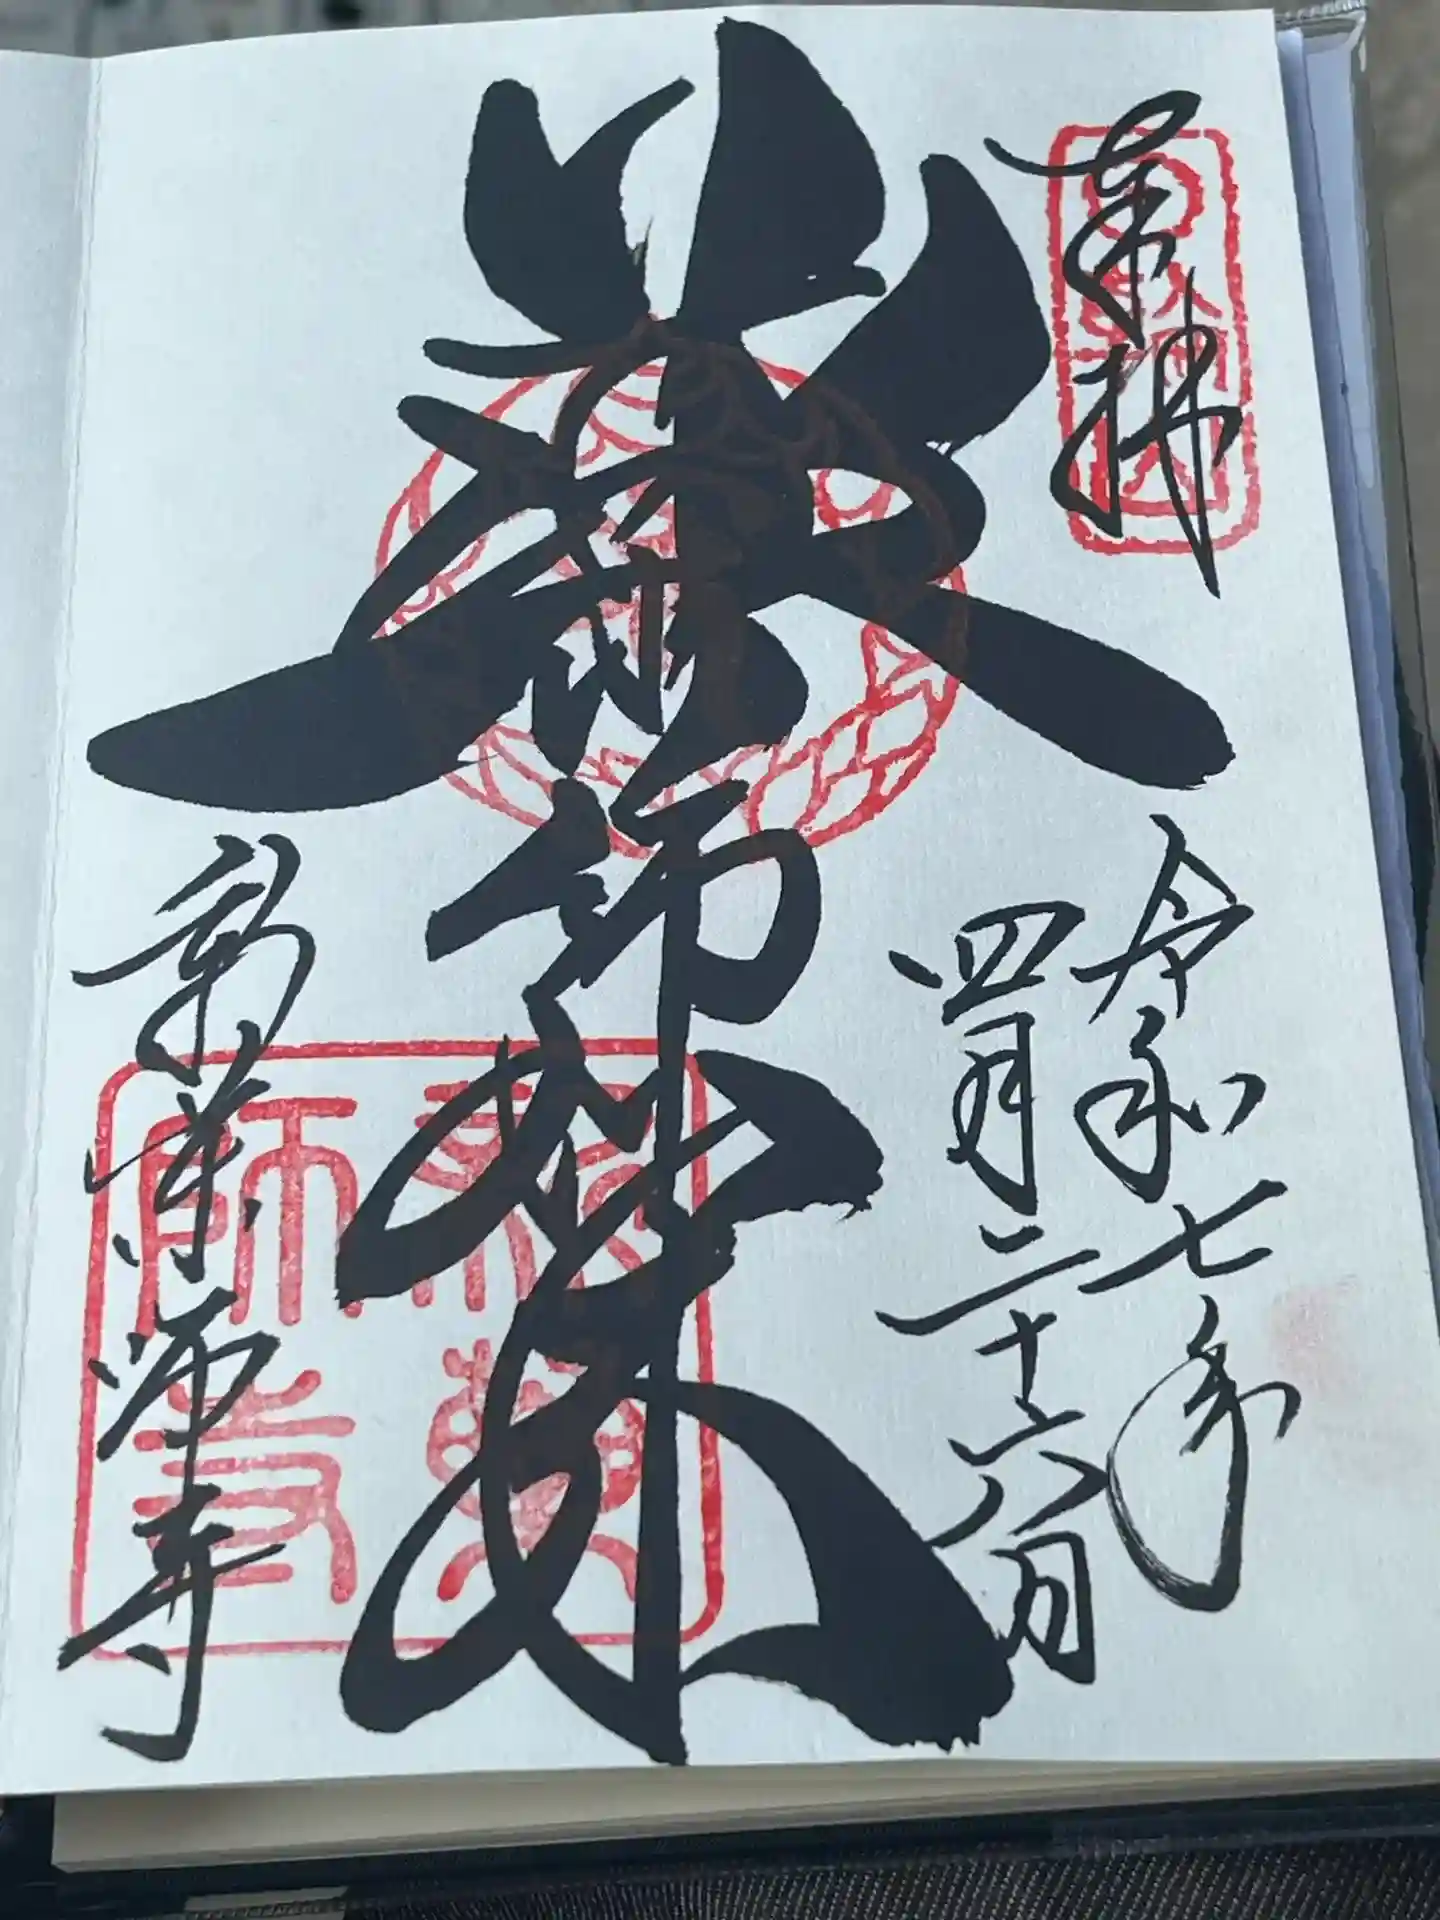 奉拝
令和七年
四月二十六日
薬師如来
新薬師寺
新薬師寺